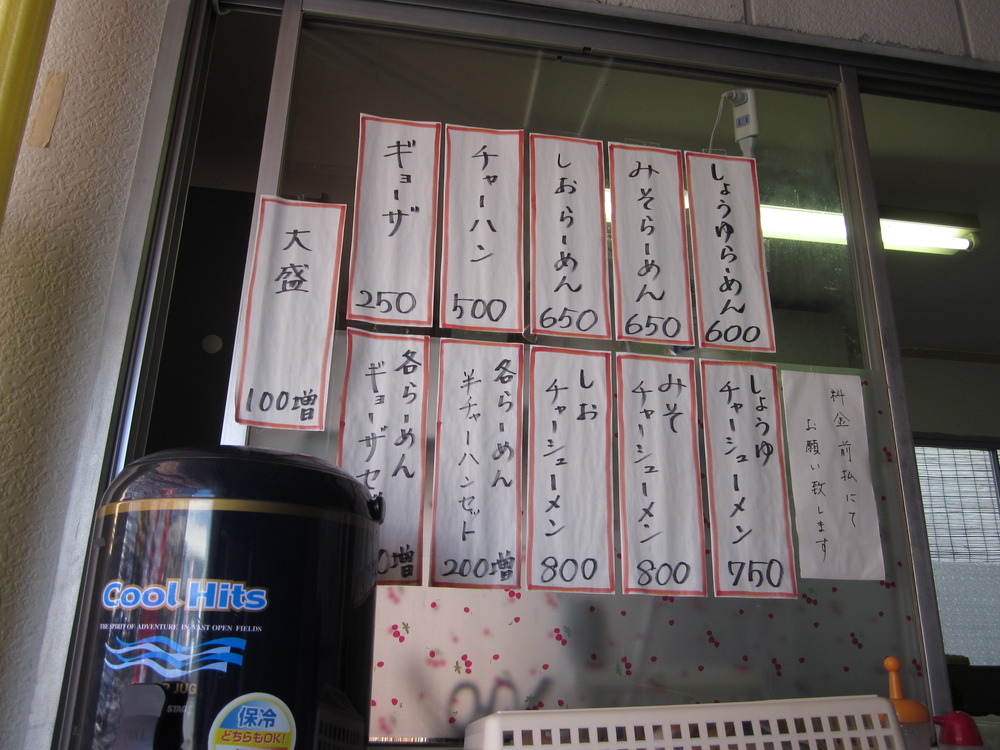 しょうゆらーめん
600
みそらーめん
650
しおらーめん
650
チャーハン
500
ギョーザ
250
大盛
100増
料金前払にて
お願い致します
しょうゆ
チャーシューメン
750
みそ
チャーシューメン
800
しお
チャーシューメン
800
各らーめん
半チャーハンセット
200増
各らーめん
ギョーザセ
0増
Cool Hits
THE SPIRIT OF ADVENTURE IN VAST OPEN FIELDS
JUG
保冷
どちらもOK!